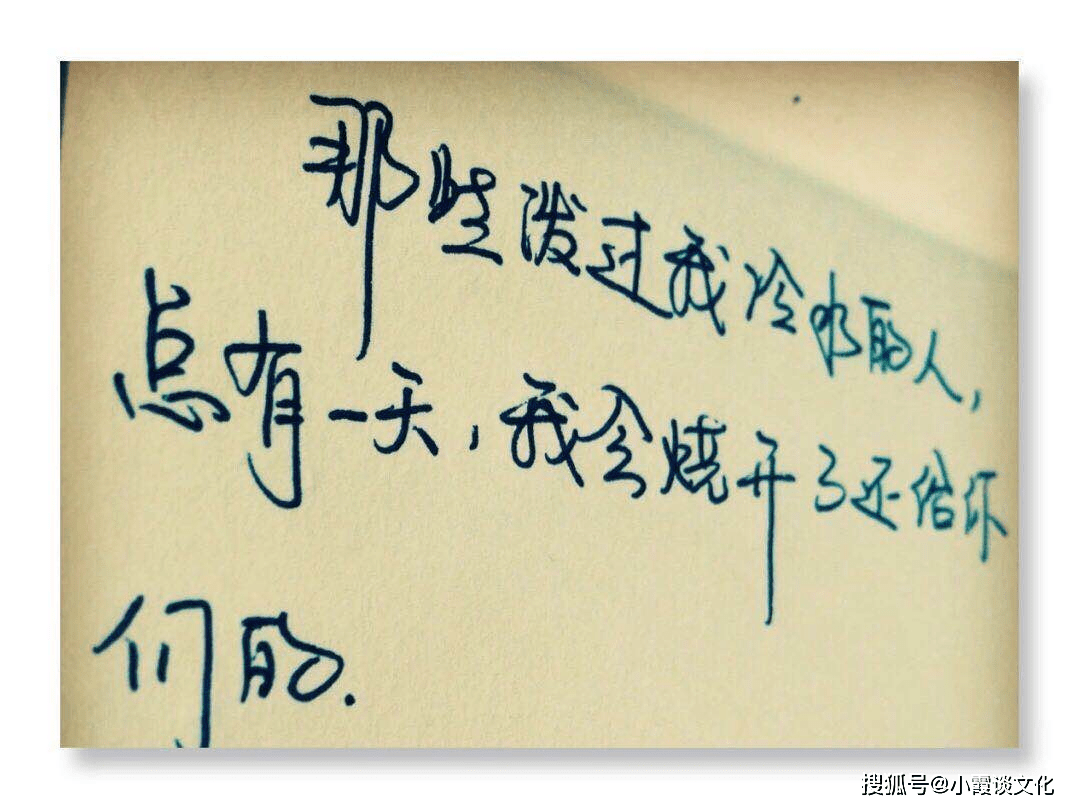 那些泼过我冷水的人,
总有一天,我会烧开了还给你
们的.
搜狐号@小霞谈文化